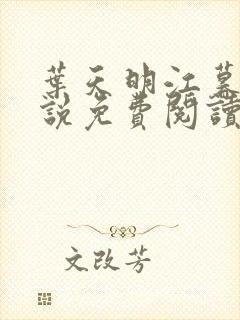 葉天明江幕
說免費閱讀
文改芳